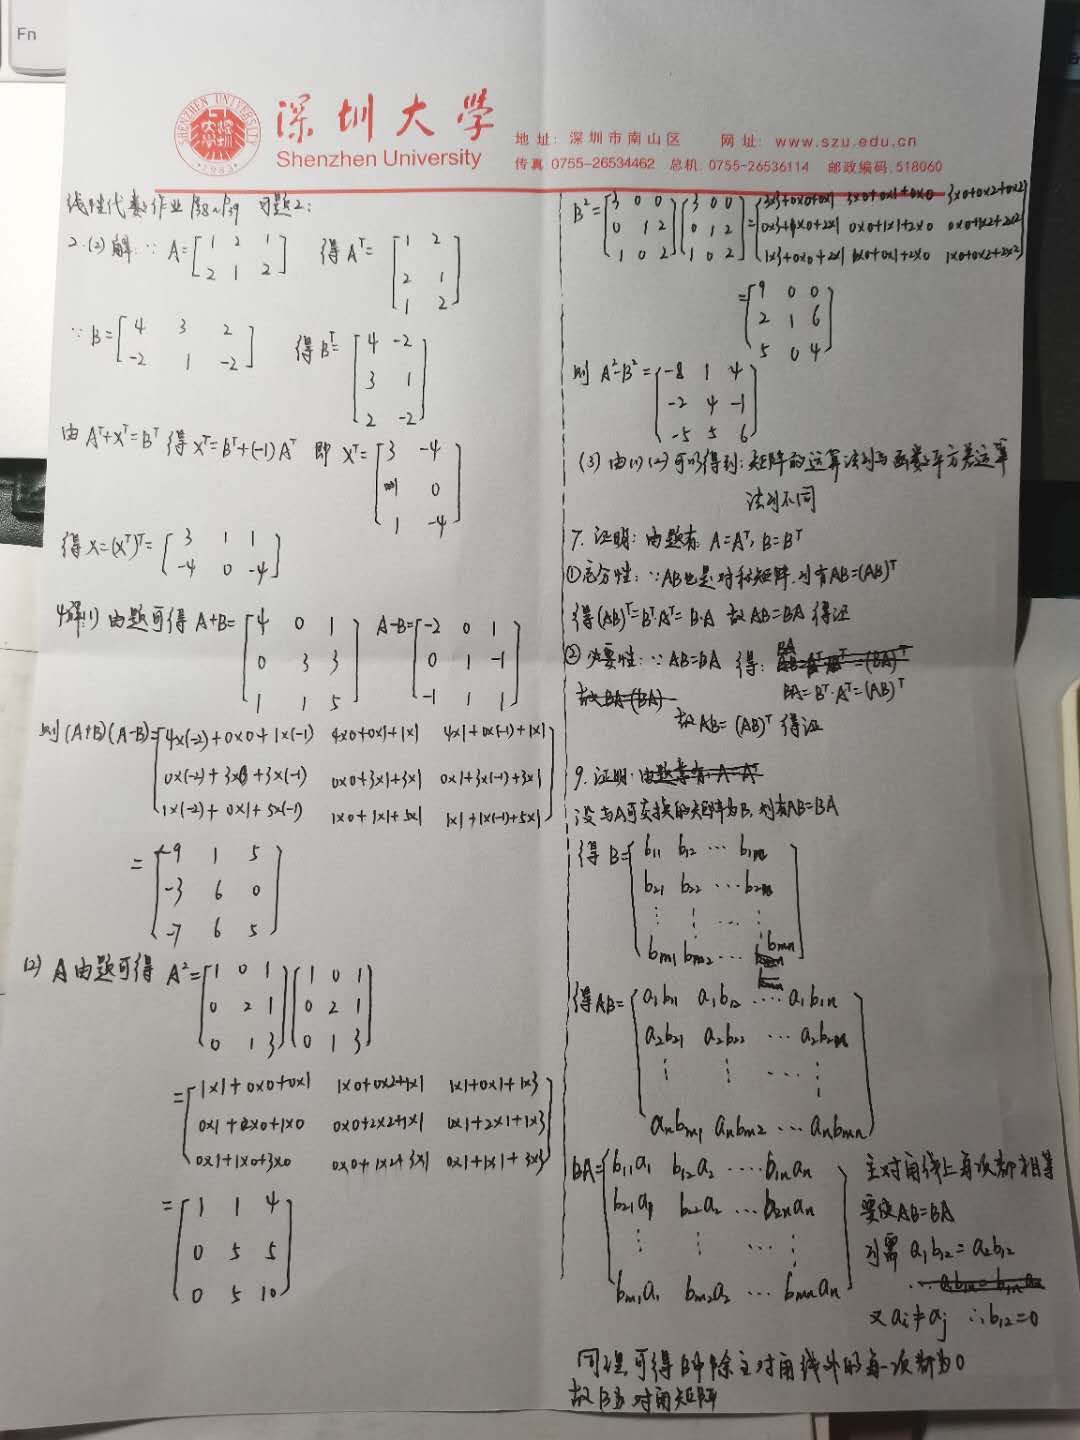 Fn
深圳大学
Shenzhen University
SHENZHEN UNIVERSITY
1983
地 址: 深圳市南山区 网 址: www.szu.edu.cn
传真 0755-26534462 总机 0755-26536114 邮政编码.518060
线性代数作业 P38~P39 习题2:
2.(2)解: ∵ A=[1 2 1
2 1 2] 得Aᵀ=[1 2
2 1
1 2]
∵ B=[4 3 2
-2 1 -2] 得Bᵀ=[4 -2
3 1
2 -2]
由Aᵀ+Xᵀ=Bᵀ 得Xᵀ=Bᵀ+(-1)Aᵀ 即 Xᵀ=[3 -4
1 0
1 -4]
得X=(Xᵀ)ᵀ=[3 1 1
-4 0 -4]
4.解(1) 由题可得 A+B=[4 0 1
0 3 3
1 1 5] A-B=[-2 0 1
0 1 -1
-1 1 1]
则(A+B)(A-B)=[4×(-2)+0×0+1×(-1) 4×0+0×1+1×1 4×1+0×(-1)+1×1
0×(-2)+3×0+3×(-1) 0×0+3×1+3×1 0×1+3×(-1)+3×1
1×(-2)+0×1+5×(-1) 1×0+1×1+5×1 1×1+1×(-1)+5×1]
=[-9 1 5
-3 6 0
-7 6 5]
(2) A由题可得 A²=[1 0 1
0 2 1
0 1 3][1 0 1
0 2 1
0 1 3]
=[1×1+0×0+0×1 1×0+0×2+1×1 1×1+0×1+1×3
0×1+2×0+1×0 0×0+2×2+1×1 0×1+2×1+1×3
0×1+1×0+3×0 0×0+1×2+3×1 0×1+1×1+3×3]
=[1 1 4
0 5 5
0 5 10]
B²=[3 0 0
0 1 2
1 0 2][3 0 0
0 1 2
1 0 2]=[3×3+0×0+0×1 3×0+0×1+0×0 3×0+0×2+0×2
0×3+1×0+2×1 0×0+1×1+2×0 0×0+1×2+2×2
1×3+0×0+2×1 1×0+0×1+2×0 1×0+0×2+2×2]
=[9 0 0
2 1 6
5 0 4]
则 A²-B²=[-8 1 4
-2 4 -1
-5 5 6]
(3) 由(1)(2)可以得到: 矩阵的运算法则与函数平方差运算
法则不同
7. 证明: 由题有: A=Aᵀ, B=Bᵀ
①充分性: ∵AB也是对称矩阵,则有AB=(AB)ᵀ
得(AB)ᵀ=Bᵀ·Aᵀ=B·A 故AB=BA 得证
②必要性: ∵ AB=BA 得:
BA=Bᵀ·Aᵀ=(AB)ᵀ
故BA=(BA)
故AB=(AB)ᵀ 得证
9. 证明: 由题意有: A=Aᵀ
设与A可交换的矩阵为B, 则有AB=BA
得 B=[b11 b12 … b1n
b21 b22 … b2n
⋮ ⋮ … ⋮
bm1 bm2 … bmn]
得AB=[a1b11 a1b12 …. a1b1n
a2b21 a2b22 … a2b2n
⋮ ⋮ … ⋮
anbm1 anbm2 … anbmn]
BA=[b11a1 b12a2 ….. b1nan
b21a1 b22a2 … b2nan
⋮ ⋮ … ⋮
bm1a1 bm2a2 … bmnan]
主对角线上每项都相等
要使AB=BA
则需 a1b12=a2b12
又ai≠aj ∴b12=0
同理可得B中除主对角线外的每一项都为0
故B为对角矩阵